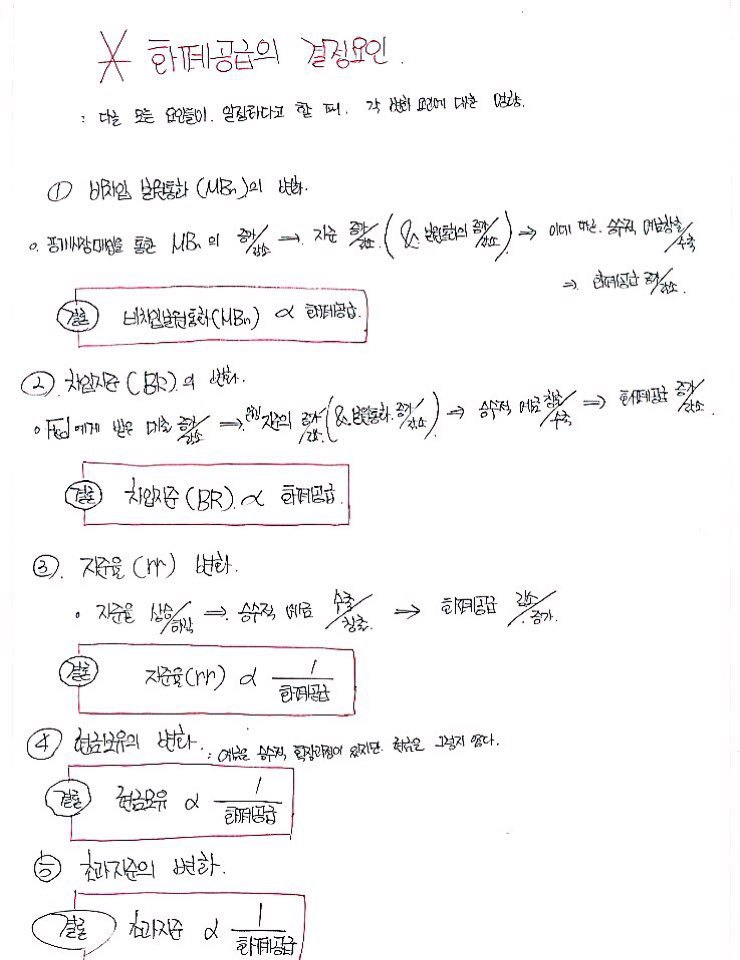 * 화폐공급의 결정요인.
: 다른 모든 요인들이 일정하다고 할 때, 각 변화 요인에 대한 영향.
① 비차입 본원통화 (MBn)의 변화.
o 공개시장매입을 통한 MBn의 증가/감소 ⇒ 지준 증가/감소 (& 본원통화의 증가/감소) ⇒ 이에 따른 승수적 예금창출/수축
⇒ 화폐공급 증가/감소.
결론 비차입본원통화(MBn) ∝ 화폐공급.
② 차입지준(BR)의 변화.
o Fed에게 받은 대출 증가/감소 ⇒ 지준의 증가/감소 (& 본원통화 증가/감소) ⇒ 승수적 예금 창출/수축 ⇒ 화폐공급 증가/감소.
결론 차입지준(BR) ∝ 화폐공급.
③ 지준율(rr) 변화.
o 지준율 상승/하락 ⇒ 승수적 예금 수축/창출 ⇒ 화폐공급 감소/증가.
결론 지준율(rr) ∝ 1/화폐공급
④ 현금보유의 변화. : 예금은 승수적 확장과정이 있지만 현금은 그렇지 않다.
결론 현금보유 ∝ 1/화폐공급
⑤ 초과지준의 변화.
결론 초과지준 ∝ 1/화폐공급